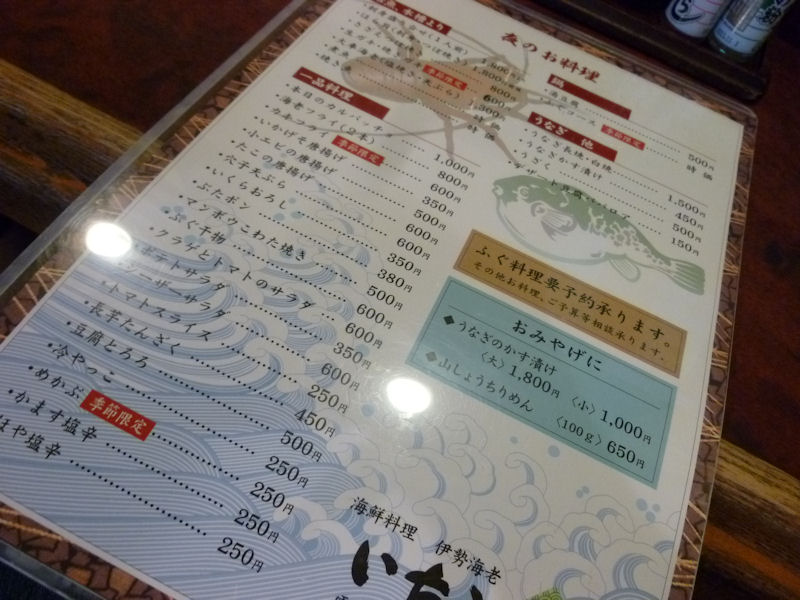 夜のお料理
鮮魚、水槽より
一品料理
・本日のカルパッチョ 1,000円
・海老フライ(2本) 800円
・カキフライ 季節限定 600円
・いかげそ唐揚げ 350円
・小エビの唐揚げ 500円
・たこの唐揚げ 600円
・穴子天ぷら 600円
・いくらおろし 350円
・ぶたポン 380円
・マンボウこわた焼き 500円
・ふぐ干物 600円
・クラゲとトマトのサラダ 600円
・ポテトサラダ 350円
・シーザーサラダ 600円
・トマトスライス 250円
・長芋たんざく 450円
・豆腐とろろ 500円
・冷やっこ 250円
・めかぶ 季節限定 250円
・かます塩辛 250円
ほや塩辛 250円
鍋
季節限定
500円
時価
うなぎ 他
・うなぎ長焼・白焼 1,500円
・うなぎかす漬け 450円
・うざく 500円
デザート 豆腐ババロア 150円
ふぐ料理要予約承ります。
その他お料理、ご予算等相談承ります。
おみやげに
◆うなぎのかす漬け
〈大〉1,800円 〈小〉1,000円
◆山しょうちりめん
〈100g〉650円
海鮮料理 伊勢海老